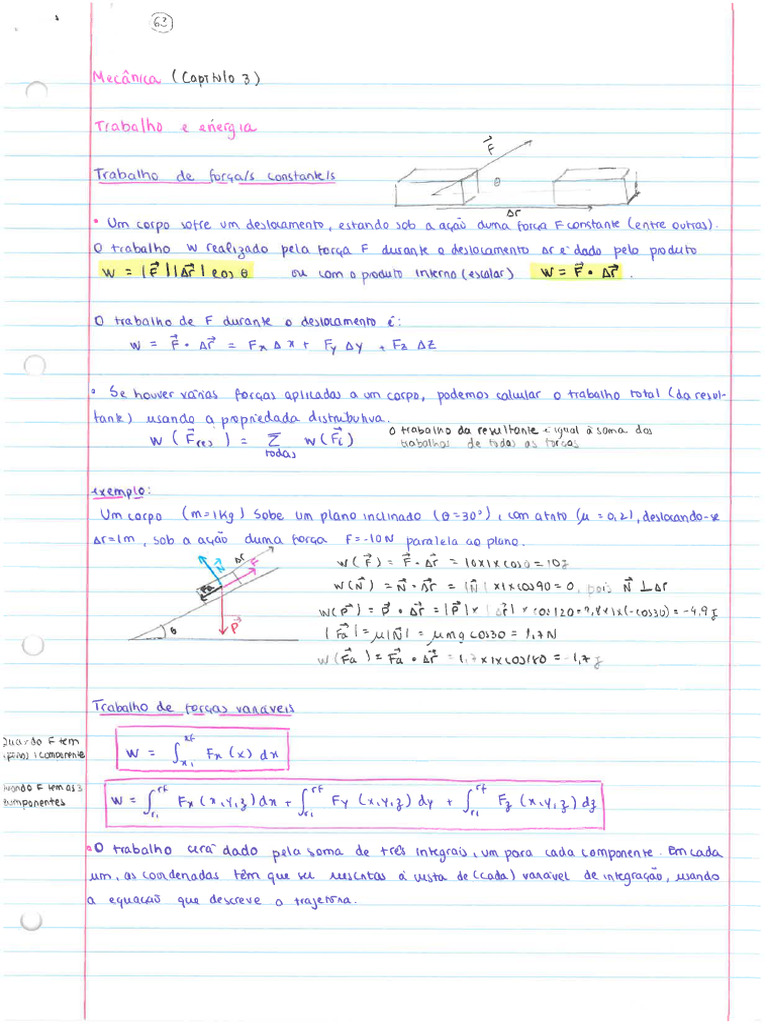 63
Mecânica (Capítulo 3)
Trabalho e energia
Trabalho de força/s constante/s
F⃗
θ
Δr
• Um corpo sofre um deslocamento, estando sob a ação duma força F constante (entre outras).
O trabalho W realizado pela força F durante o deslocamento Δr é dado pelo produto
W = |F⃗||Δr⃗| cos θ ou com o produto interno (escalar) W = F⃗ • Δr⃗.
O trabalho de F durante o deslocamento é:
W = F⃗ • Δr⃗ = Fx Δx + Fy Δy + Fz Δz
• Se houver várias forças aplicadas a um corpo, podemos calcular o trabalho total (da resul-
tante) usando a propriedada distributiva.
W (F⃗res) = Σ W(F⃗i) O trabalho da resultante é igual à soma dos
todas trabalhos de todas as forças
exemplo:
Um corpo (m=1Kg) sobe um plano inclinado (θ=30°), com atrito (μ = 0,2), deslocando-se
Δr=1m, sob a ação duma força F=-10N paralela ao plano.
N⃗
Δr
F
Fa
P⃗
θ
W(F⃗) = F⃗ • Δr⃗ = 10x1xcos0 = 10J
W(N⃗) = N⃗ • Δr⃗ = |N⃗|x1xcos90 = 0, pois N⃗ ⊥ Δr
W(P⃗) = P⃗ • Δr⃗ = |P⃗|x|Δr⃗|x cos120 = 9,8x1x(-cos30) = -4,9J
|F⃗a| = μ|N⃗| = μmg cos30 = 1,7N
W(F⃗a) = F⃗a • Δr⃗ = 1,7x1xcos180 = -1,7J
Trabalho de forças variáveis
Quando F tem
1 componente
W = ∫x1^xf Fx (x) dx
quando F tem as 3
componentes
W = ∫r1^rf Fx (x,y,z) dx + ∫r1^rf Fy (x,y,z) dy + ∫r1^rf Fz (x,y,z) dz
• O trabalho será dado pela soma de três integrais, um para cada componente. Em cada
um, as coordenadas têm que ser reescritas à vista de (cada) variável de integração, usando
a equação que descreve a trajetória.